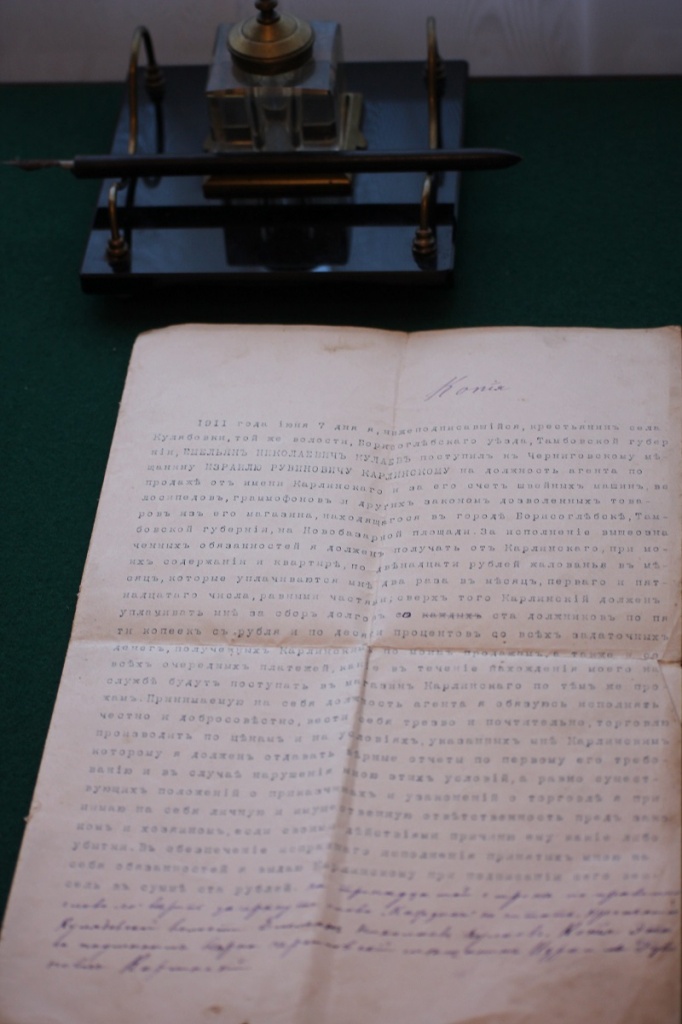 Копія
1911 года іюня 7 дня я, нижеподписавшійся, крестьянинъ села
Кулябовки, той же волости, Борисоглѣбскаго уѣзда, Тамбовской губер
ніи, ЕМЕЛЬЯНЪ НИКОЛАЕВИЧЪ КУЛАЕВЪ поступилъ къ Черниговскому мѣ
щанину ИЗРАИЛЮ РУВИНОВИЧУ КАРЛИНСКОМУ на должность агента по
продажѣ отъ имени Карлинскаго и за его счетъ швейныхъ машинъ, ве
лосипедовъ, граммофоновъ и другихъ закономъ дозволенныхъ това-
ровъ изъ его магазина, находящагося въ городѣ Борисоглѣбскѣ, Там-
бовской губерніи, на Новобазарной площади. За исполненіе вышеозна
ченныхъ обязанностей я долженъ получать отъ Карлинскаго, при мо-
ихъ содержаніи и квартирѣ, по двѣнадцати рублей жалованья въ мѣ-
сяцъ, которые уплачиваются мнѣ два раза въ мѣсяцъ, перваго и пят-
надцатаго числа, равными частями сверхъ того Карлинскій долженъ
уплачивать мнѣ за сборъ долговъ со ста должниковъ по пя
ти копеекъ съ рубля и по десяти процентовъ со всѣхъ задаточныхъ
денегъ, полученныхъ Карлинскимъ по моимъ продажамъ, а также
всѣхъ очередныхъ платежей, въ теченіе нахожденія моего на
службѣ будутъ поступать въ магазинъ Карлинскаго по тѣмъ же про
жамъ. Принимаемую на себя должность агента я обязуюсь исполнять
честно и добросовѣстно, вести себя трезво и почтительно, торговлю
производить по цѣнамъ и на условіяхъ, указанныхъ мнѣ Карлинскимъ
которому я долженъ отдавать вѣрные отчеты по первому его требо-
ванію и въ случаѣ нарушенія мною этихъ условій, а равно сущест-
вующихъ положеній о прикащикахъ и узаконеній о торговлѣ я при
нимаю на себя личную и имущественную отвѣтственность предъ зако
номъ и хозяиномъ, если своими дѣйствіями причиню ему какіе либо
убытки. Въ обезпеченіе исправнаго исполненія принятыхъ мною на
себя обязанностей я выдаю Карлинскому при подписаніи сего век-
сель въ суммѣ ста рублей.